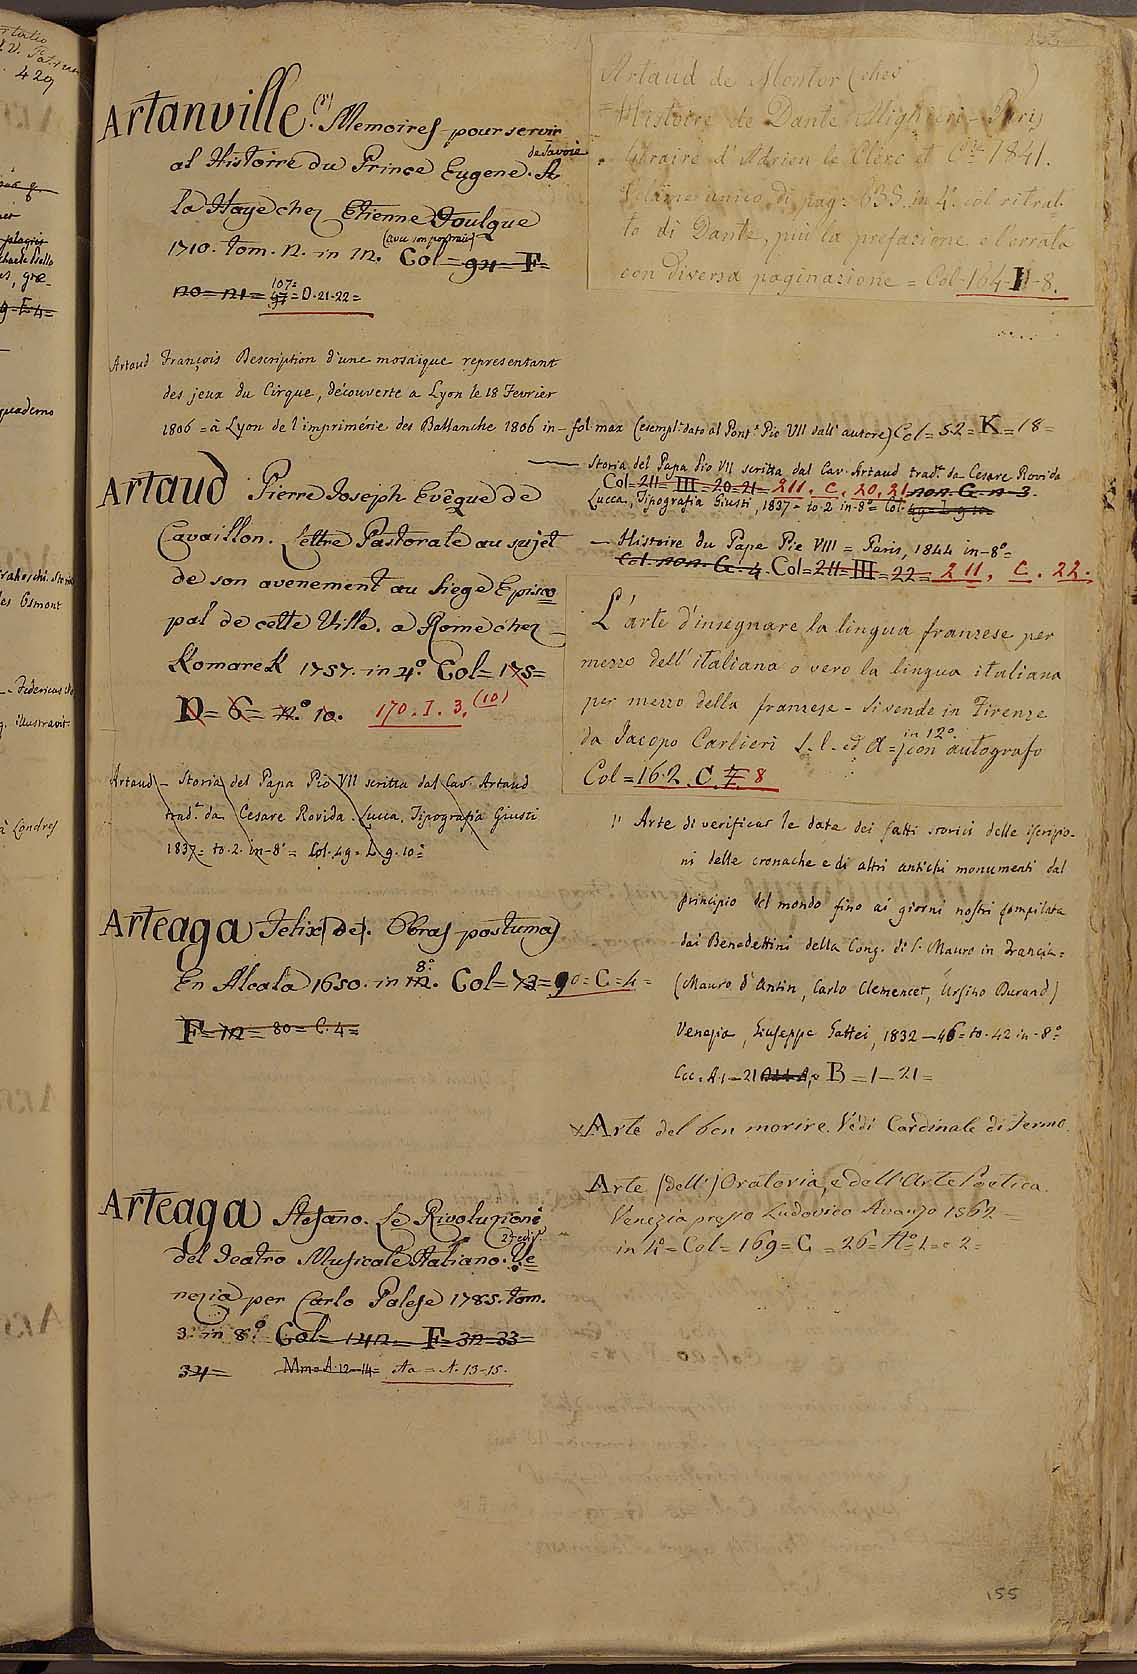 Artanville (d') Memoires pour servir
de Savoie
al Histoire du Prince Eugene. A
la Haye chez Etienne Foulque
(avec son portrait)
1710. tom. 2. in 12. Col = 94 = F =
20 = 21 = 107 = 97 = D. 21-22 =
Artaud François Description d'une mosaique representant
des jeux du Cirque, découverte a Lyon le 18 Fevrier
1806 = à Lyon de l'imprimérie des Ballanche 1806 in-fol. max (esempl. dato al Pont.e Pio VII dall' autore) Col = 52 = K = 18 =
Artaud Pierre Joseph Evêque de
Cavaillon. Lettre Pastorale au sujet
de son avenement au Siege Episco
pal de cette Ville. a Rome chez
Komarek 1757. in 4.º Col = 175 =
D = 6 = n.º 10. 170. I. 3. (10)
Artaud - Storia del Papa Pio VII scritta dal Cav. Artaud
trad. da Cesare Rovida. Lucca, Tipografia Giusti
1837 = to. 2. in-8º = Col. 49 = L 9. 10 =
Arteaga Felix (de). Obras postumas
En Alcalà 1650. in 12. 8º. Col = 73 = 90 = C = 4 =
F = 12 = 80 = C. 4 =
Arteaga Stefano. Le Rivoluzioni
2ª ediz.
del Teatro Musicale Italiano. Ve
nezia per Carlo Palese 1785. tom.
3. in 8º. Col = 142 = F = 32-33 =
34 = Mm = A. 12-14 = Aa = A. 13-15.
Artaud de Montor (chev. )
= Histoire de Dante Alighieri - Paris
libraire d'Adrien le Clerc et C.ie 1841.
Volume unico di pag: 635. in 4º. col ritrat-
to di Dante, più la prefazione e l'errata
con diversa paginazione = Col - 164 - H - 8.
Storia del Papa Pio VII scritta dal Cav. Artaud trad. da Cesare Rovida
Col = 211 = III = 20 = 21 = 211. C. 20. 21 non. G. n. 3.
Lucca, Tipografia Giusti, 1837 = to. 2 in-8º = Col.
- Histoire du Pape Pie VIII = Paris, 1844 in-8º =
Col. non. G. 4. Col = 211 = III = 22 = 211. C. 22.
L'arte d'insegnare la lingua franzese per
mezzo dell'italiana o vero la lingua italiana
per mezzo della franzese - Si vende in Firenze
in 12º.
da Jacopo Carlieri S. l. ed a = con autografo
Col = 162. C. 7. 8
l' Arte di verificar le date dei fatti storici delle iscrizio-
ni delle cronache e di altri antichi monumenti dal
principio del mondo fino ai giorni nostri compilata
dai Benedettini della Cong. di S. Mauro in Francia =
(Mauro d'Antin, Carlo Clemencet, Ursino Durand)
Venezia, Giuseppe Gattei, 1832 - 46 = to. 42 in-8º =
Ccc. A. 1 - 21 B = 1 - 21 =
× Arte del ben morire. Vedi Cardinale di Fermo.
Arte (dell') Oratoria, e dell'Arte Poetica.
Venezia presso Ludovico Avanzo 1562 =
in 4º = Col = 169 = G = 26 = nº 1 = e 2 =
155